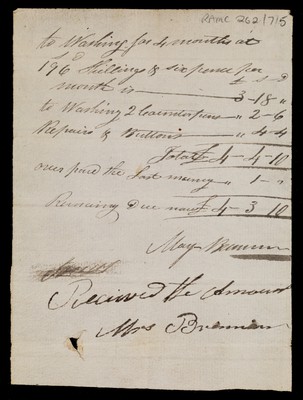 RAMC 262/715
to Washing for 4 months at
19 6d Shillings & sixpence per £ s d
month is 3 - 18 - "
to Washing 2 Counterpins " 2 - 6
Repairs & Buttons " 4 - 4
Total £ 4 - 4 - 10
over paid the last money " 1 - "
Remaining Due now £ 4 - 3 - 10
May
Recieved the Amount
Mrs Brennen